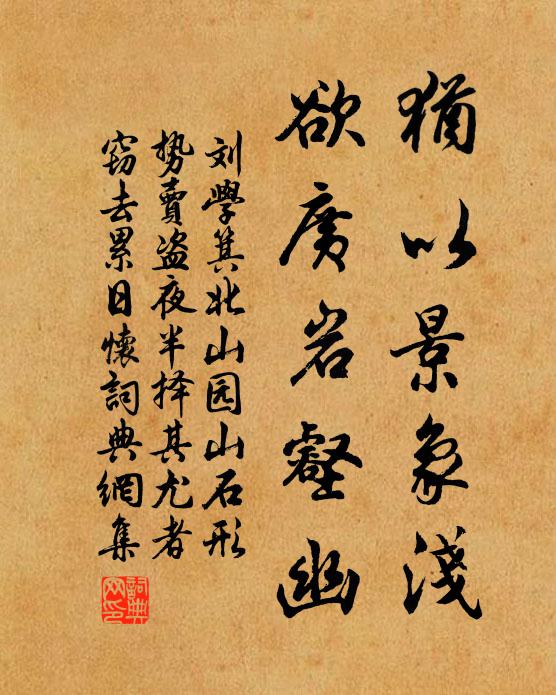 猶以景象淺
欲廣岩壑幽
刘學箕北山园山石形
势賣盗夜半择其尤者
窃去累日懷詞典網集
詞典
网印